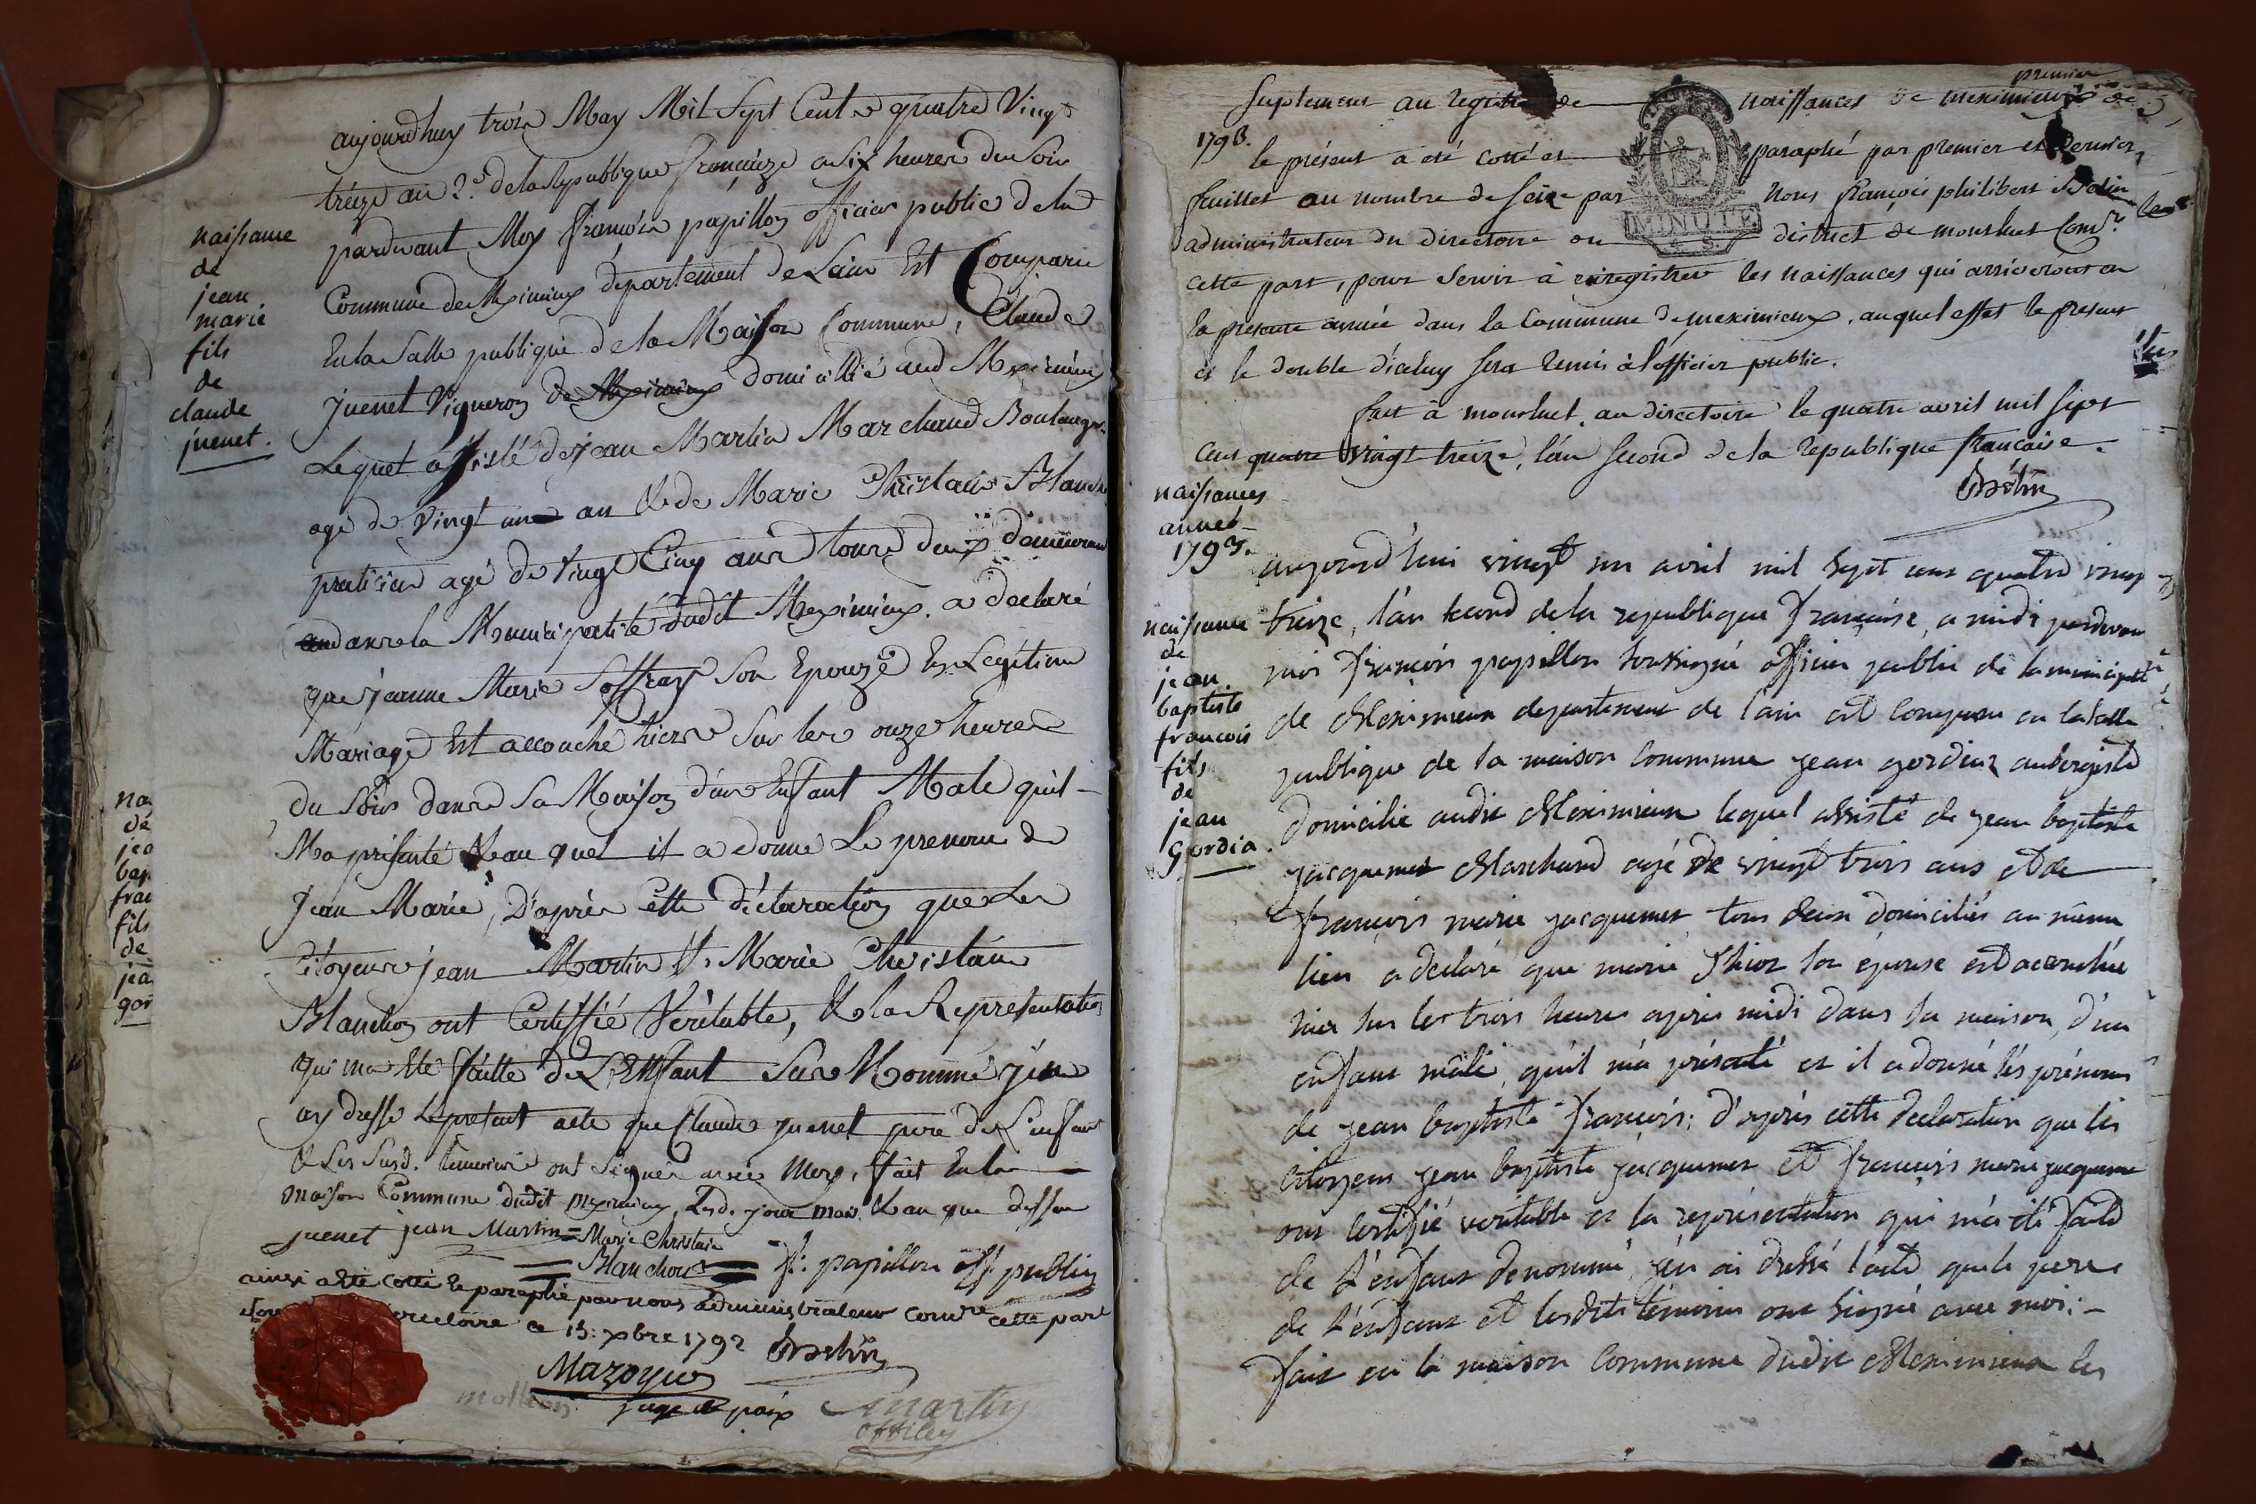 aujourdhuy trois May Mil Sept Cent quatre Vingt
treize an 2e. de la Republique françaize a Six heures du Soir
pardevant Moy François papillon officier public de la
Commune de Meximieux département de Lain Est Comparu
En la Salle publique de la Maison Commune, Claude
juenet Vigneron de Meximieux domicillié aud Meximieux
Lequel assisté de jean Martin Marchand Boulanger
agé de Vingt un an & de Marie Christain Blanchon
praticien agé de Vingt Cinq ans tous deux demeurant
dans la Municipalité dudit Meximieux. a déclaré
que jeanne Marie Soffray Son Epouze En Legitime
Mariage Est accouché hier Sur les onze heures
du Soir dans Sa Maison d'un Enfant Male quil
Ma présenté & au quel il a donné Le prenom de
Jean Marie, D'après Cette déclaration que Les
Citoyens jean Martin & Marie Christain
Blanchon ont Certiffié Véritable, & la Representation
qui ma Eté faitte de L'Enfant Sus Nommé j'en
ay dressé Le présent acte que Claude juenet pere de L'enfant
& Les Susd. temoins ont Signés avec Moy, fait En la
Maison Commune dudit Meximieux, Lesd. jour mois & an que dessus
juenet jean Martin = Marie Christain
Blanchon = f: papillon off. public
ainsi a été cotté & paraphé par nous administrateur comre cette part
directoire ce 15: xbre 1792
Mazoyer
juge de paix
martin
officier
naissance
de
jean
marie
fils
de
claude
juenet.
na
de
jea
bap
fran
fils
de
jea
gor
premier
Suplement au registre de naissances de meximieux de
1793.
le présent a été cotté et paraphé par premier et dernier,
feuillet au nombre de seize par Nous françois philibert
administrateur du directoire du district de montluel Comre.
MINUTE
cette part, pour servir à enregistrer les naissances qui arriveront en
la présente année dans la Commune de meximieux, auquel effet le présent
et le double d'iceluy sera remis à l'officier public.
fait à montluel au directoire le quatre avril mil sept
cent quatre vingt treize, l'an second de la republique française.
naissances
année
1793.
naissance
de
jean
baptiste
francois
fils
de
jean
Gordia.
aujourd'hui vingt un avril mil sept cent quatre vingt
treize, l'an second de la republique françoise, a midi pardevant
moi françois papillon soussigné officier public de la municipalité
de Meximieux departement de l'ain est comparu en la salle
publique de la maison commune jean gordiaz aubergiste
domicilié audit Meximieux lequel assisté de jean baptiste
jacquemet Marchand agé de vingt trois ans et de
françois marie jacquemet tous deux domiciliés au même
lieu a declaré que marie son épouse est accouchée
hier sur les trois heures après midi dans sa maison d'un
enfant mâle, qu'il m'a présenté et il a donné les prénoms
de jean baptiste françois; d'après cette declaration que les
citoyens jean baptiste jacquemet et françois marie jacquemet
ont certifié veritable et la représentation qui m'a été faite
de l'enfant denommé, j'en ai dressé l'acte que le pere
de l'enfant et lesdits témoins ont signé avec moi;
fait en la maison commune dudit Meximieux les